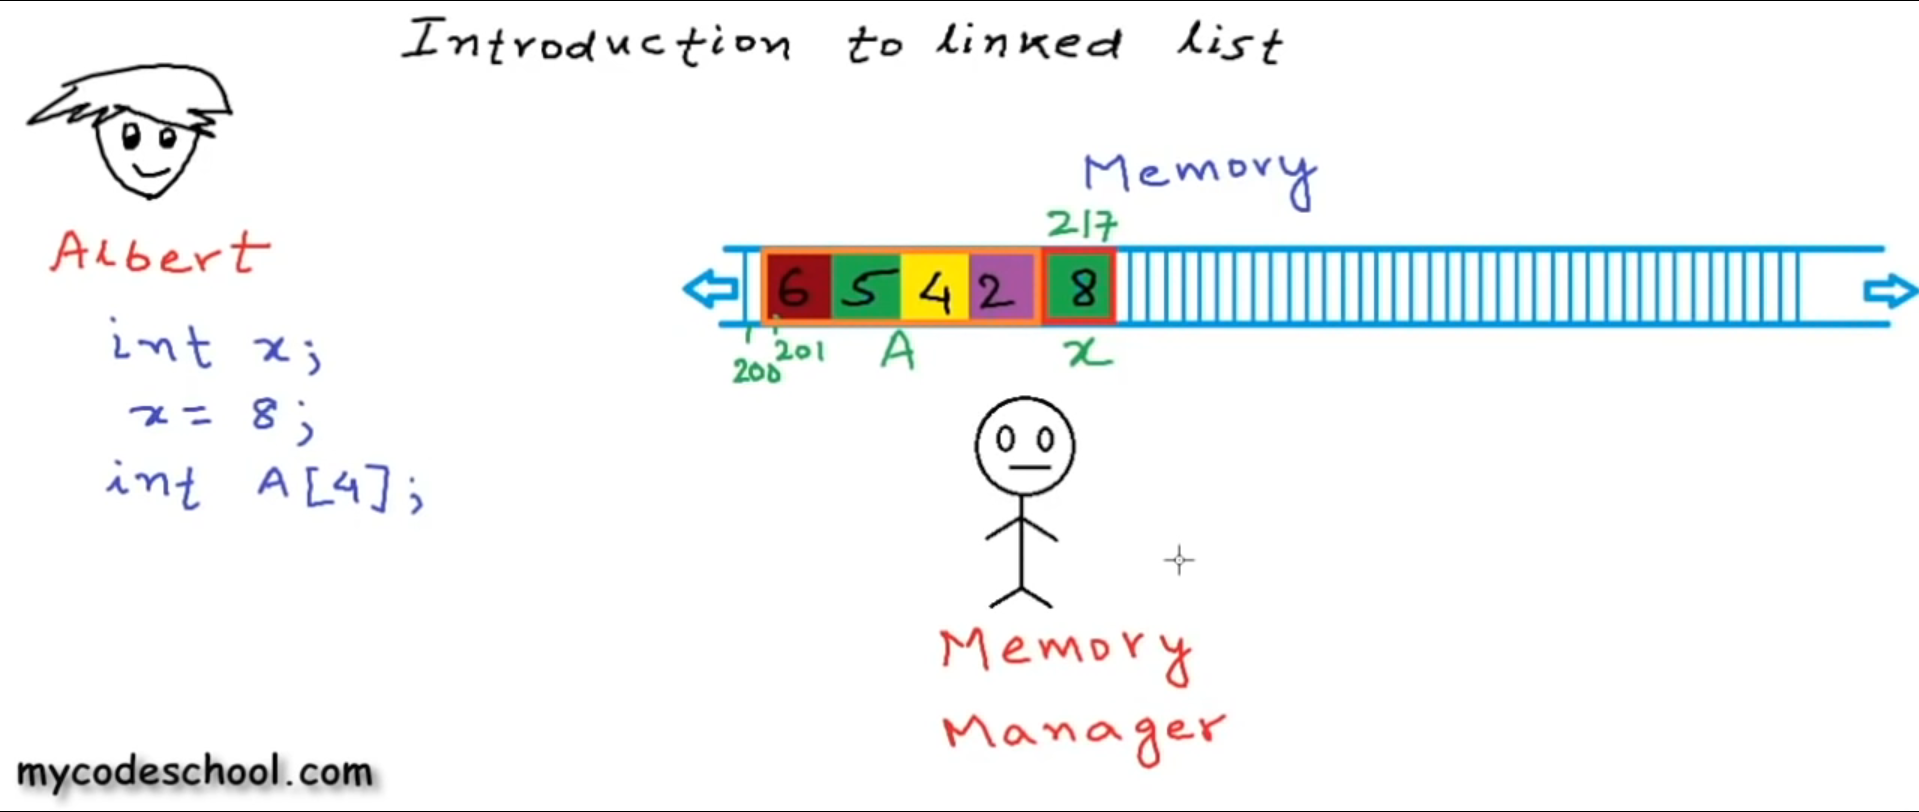 Introduction to linked list
Albert
int x;
x = 8;
int A[4];
Memory
217
6 5 4 2 8
200 201 A x
Memory
Manager
mycodeschool.com